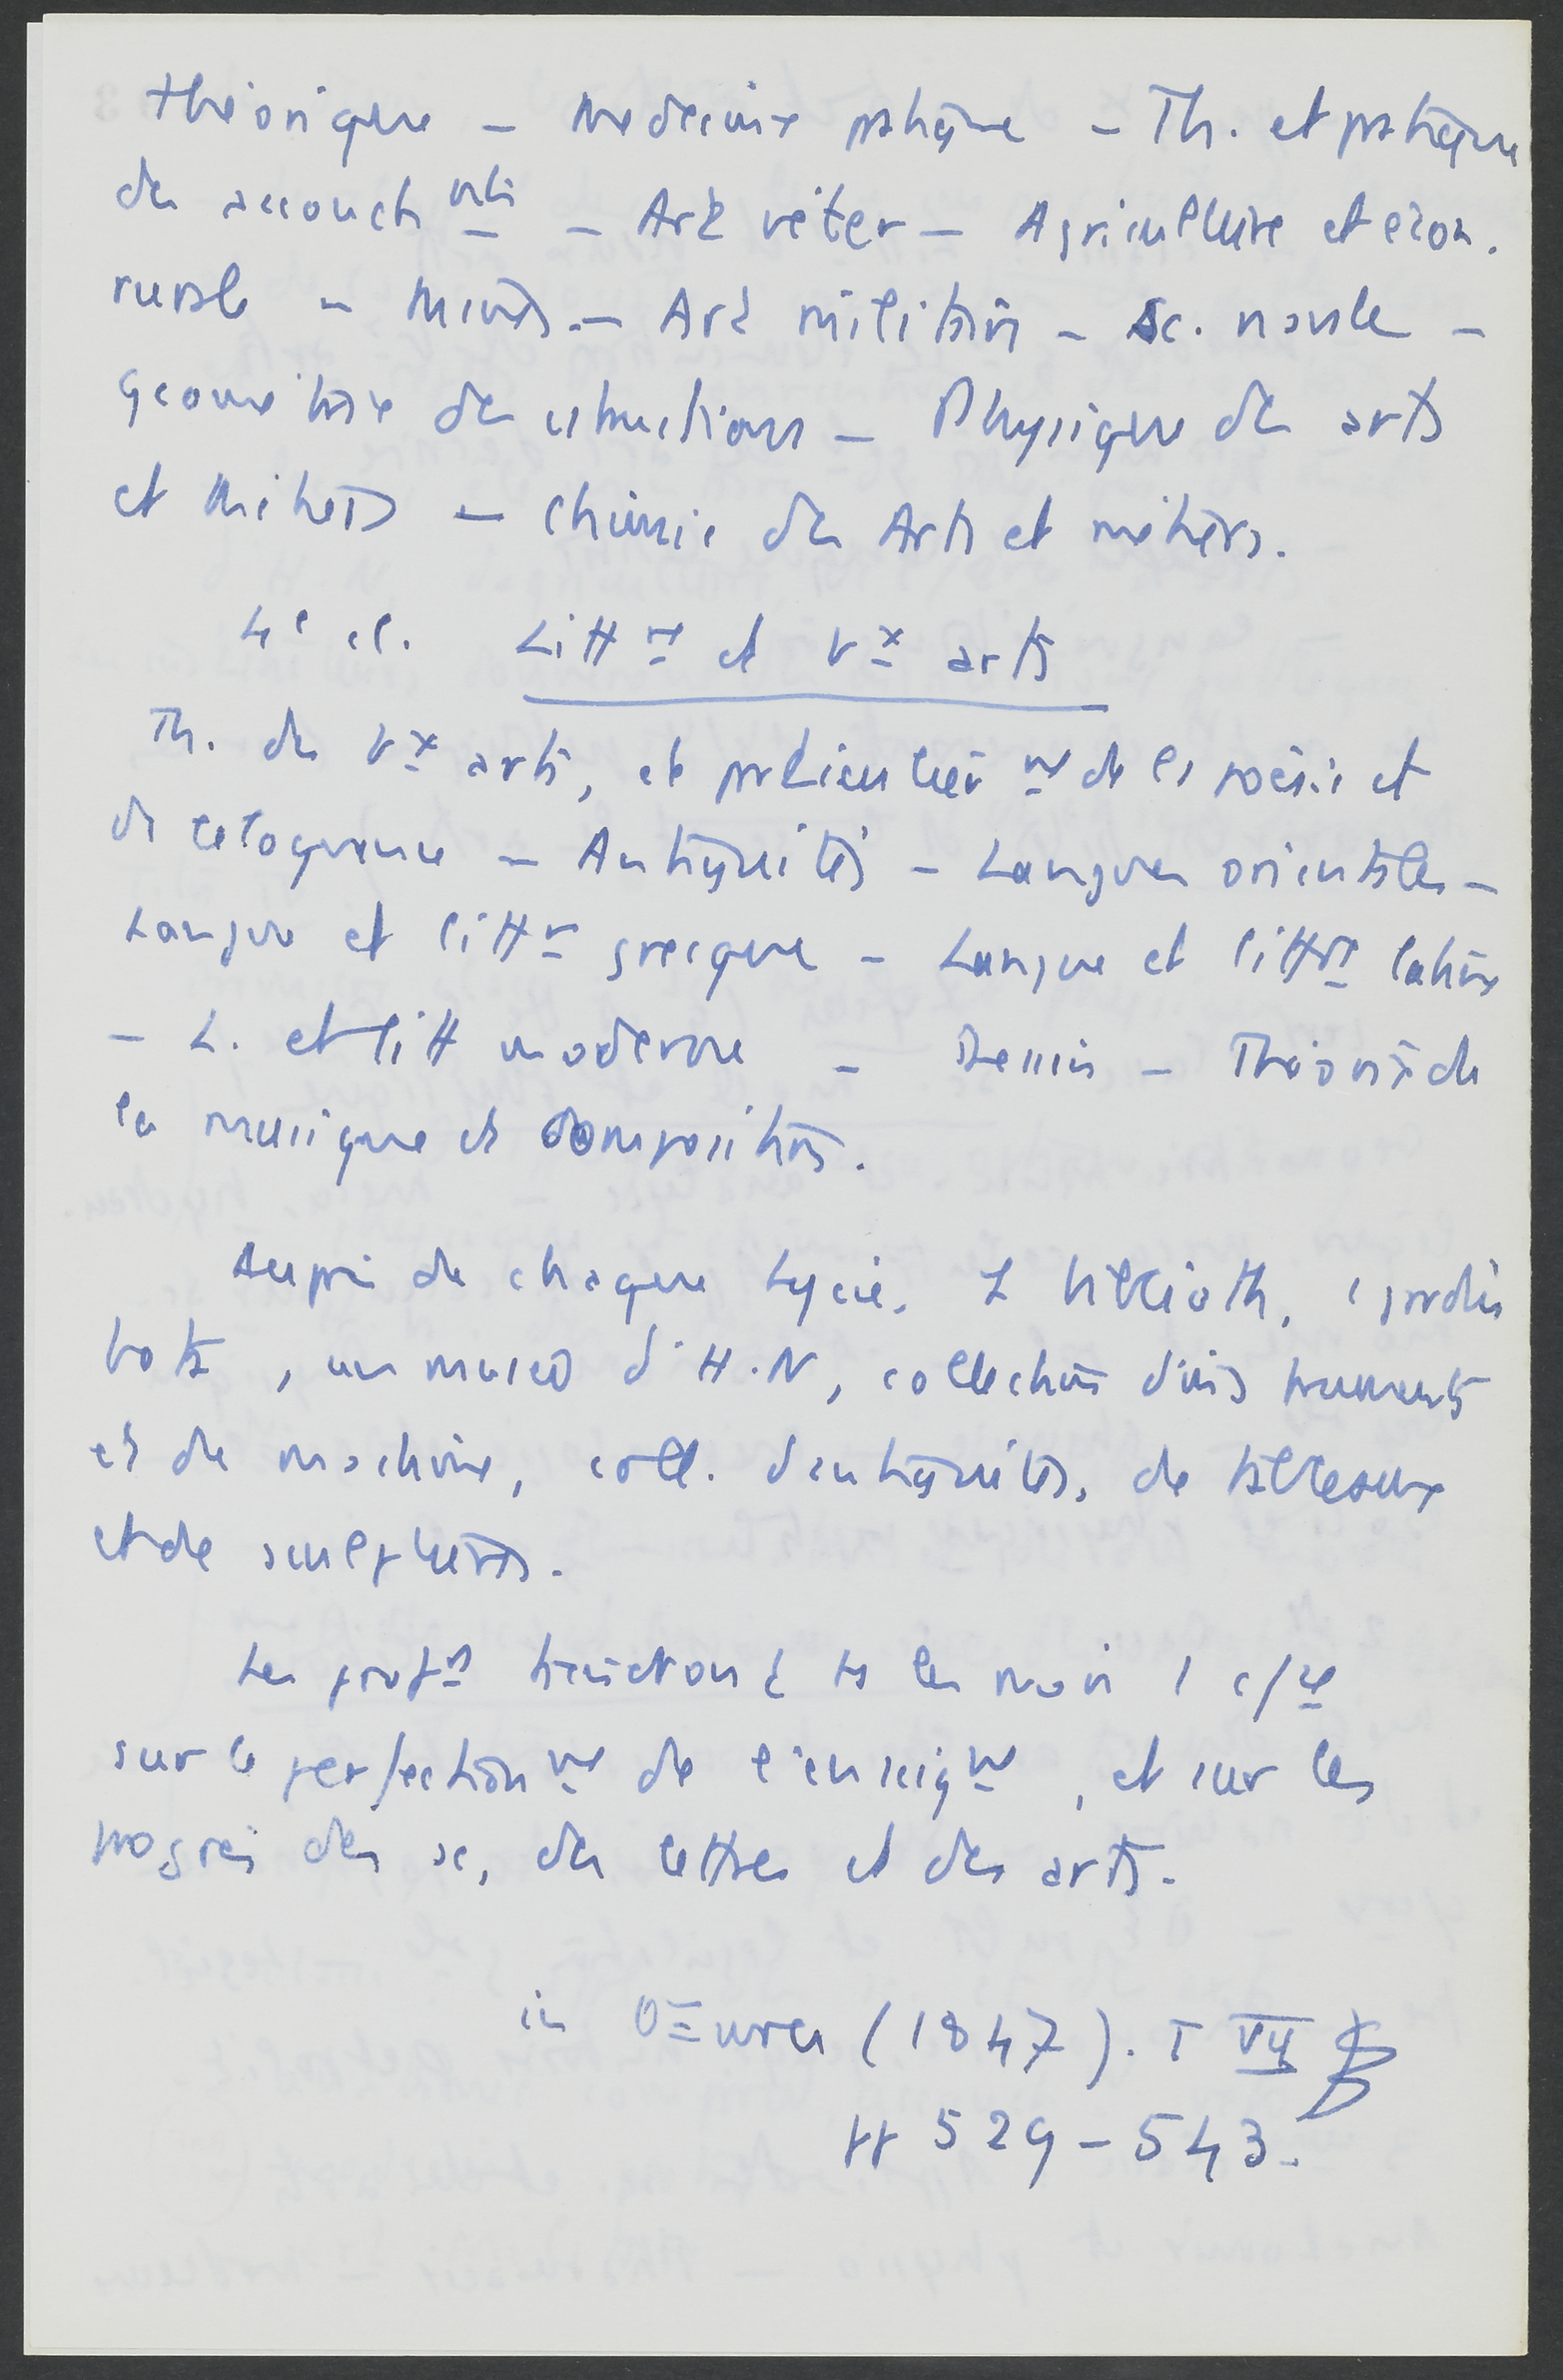 théorique – Medecine pratique – Th. et pratique
des accouch mts – Art véter – Agriculture et écon.
rurale – Mines. – Art militaire – Sc. navale –
Géométrie des cstructions – Physique des arts
et Métiers – Chimie des Arts et métiers.
4e cl. Littre et bx arts
Th. des bx arts, et particulièrmt de la poésie et
de l'éloquence – Antiquités – Langues orientales –
Langue et littre grecque – Langue et littre latine
– L. et litt moderne – Dessin – Théorie de
la musique et composition.
Auprès de chaque Lycée, 1 biblioth, 1 jardin
bota, un muséo d'H.N, collection d'instruments
et de machine, coll. d'antiquités, de tableaux
et de sculptures.
Les profrs tiendront ts les mois 1 c/ce
sur le perfectionnmt de l'enseigmt, et sur les
progrès des sc, des lettres et des arts.
in OEuvres (1847). T VII
pp 529 – 543.